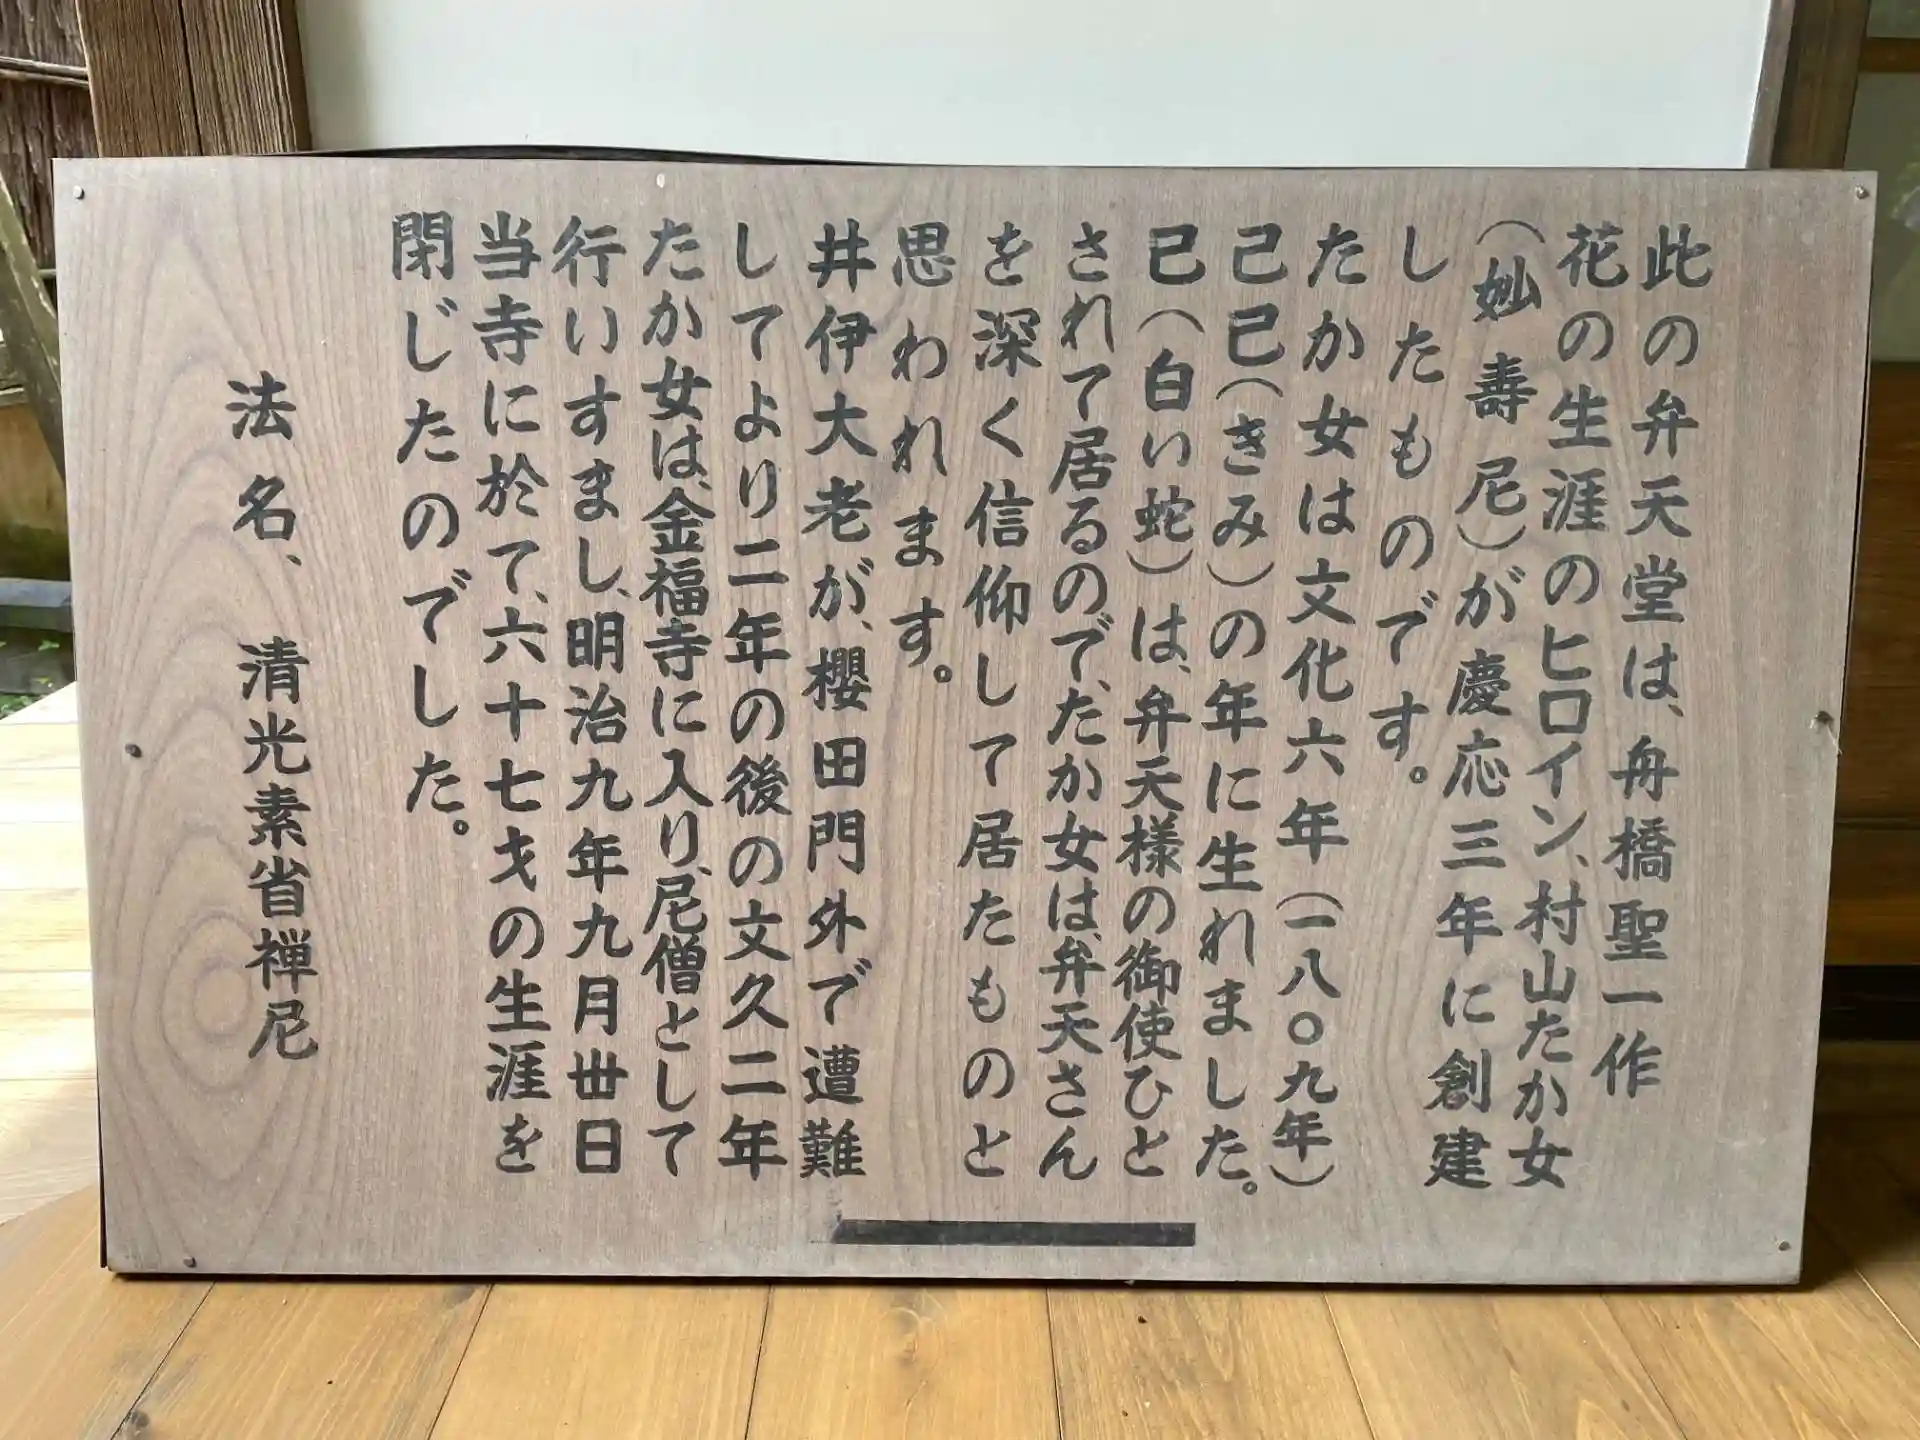 此の弁天堂は、舟橋聖一作
花の生涯のヒロイン、村山たか女
（妙壽尼）が慶応三年に創建
したものです。
たか女は文化六年（一八〇九年）
己巳（きみ）の年に生れました。
巳（白い蛇）は、弁天様の御使ひと
されて居るので、たか女は、弁天さん
を深く信仰して居たものと
思われます。
井伊大老が、櫻田門外で遭難
してより二年の後の文久二年
たか女は、金福寺に入り、尼僧として
行いすまし、明治九年九月丗日
当寺に於て、六十七才の生涯を
閉じたのでした。
法名、 清光素省禅尼